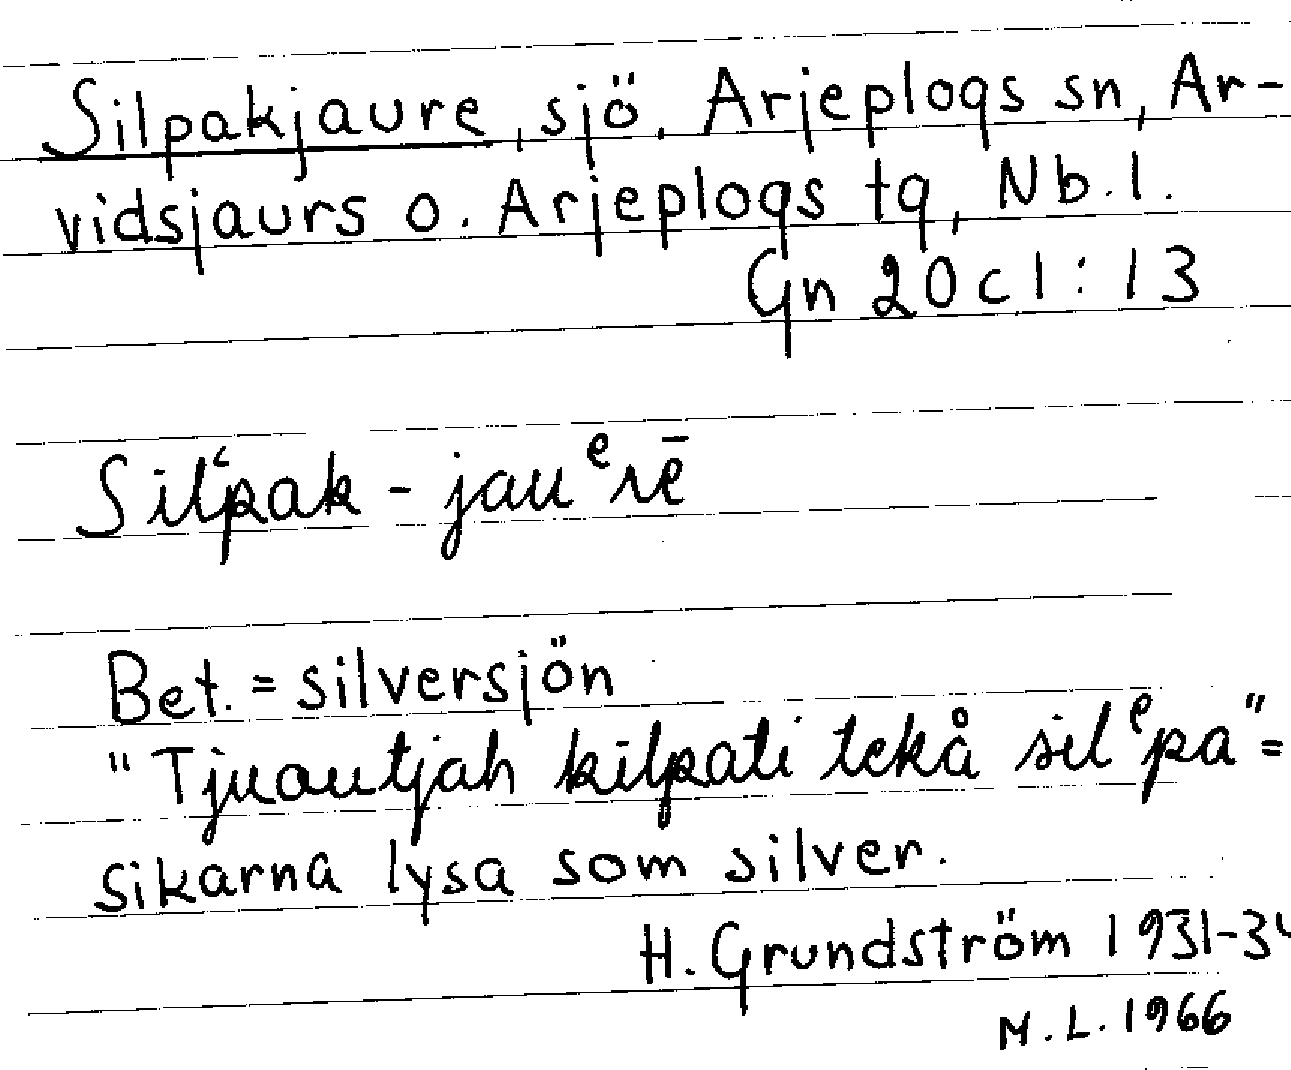 Silpakjaure, sjö. Arjeplogs sn, Ar-
vidsjaurs o. Arjeplogs tg, Nb.l.
Gn 20 c 1 : 13
Silʿpak - jauᵉrē
Bet. = silversjön
"Tjuoutjah kilpati tekå silᵉpa" =
sikarna lysa som silver.
H. Grundström 1931-34
M.L. 1966